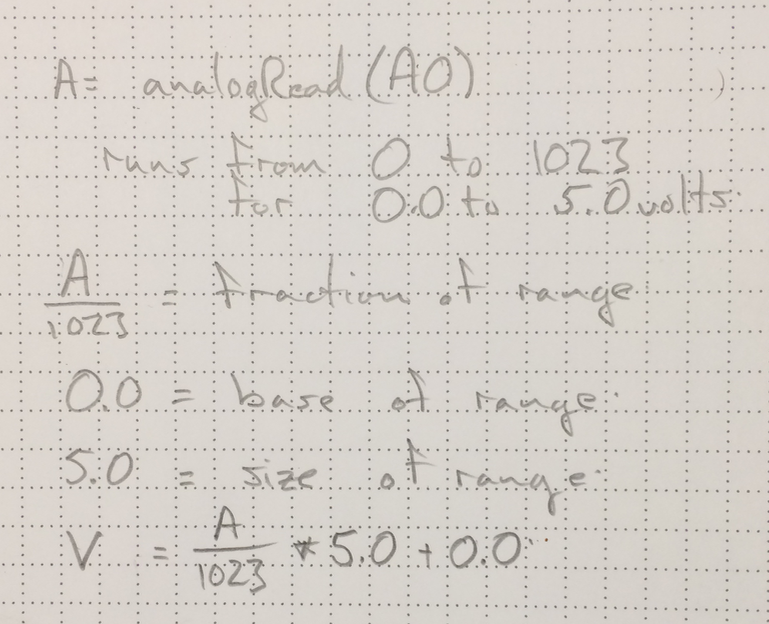 A = analogRead(A0)
runs from 0 to 1023
for 0.0 to 5.0 volts
A
1023 = fraction of range
0.0 = base of range
5.0 = size of range
V = A/1023 * 5.0 + 0.0